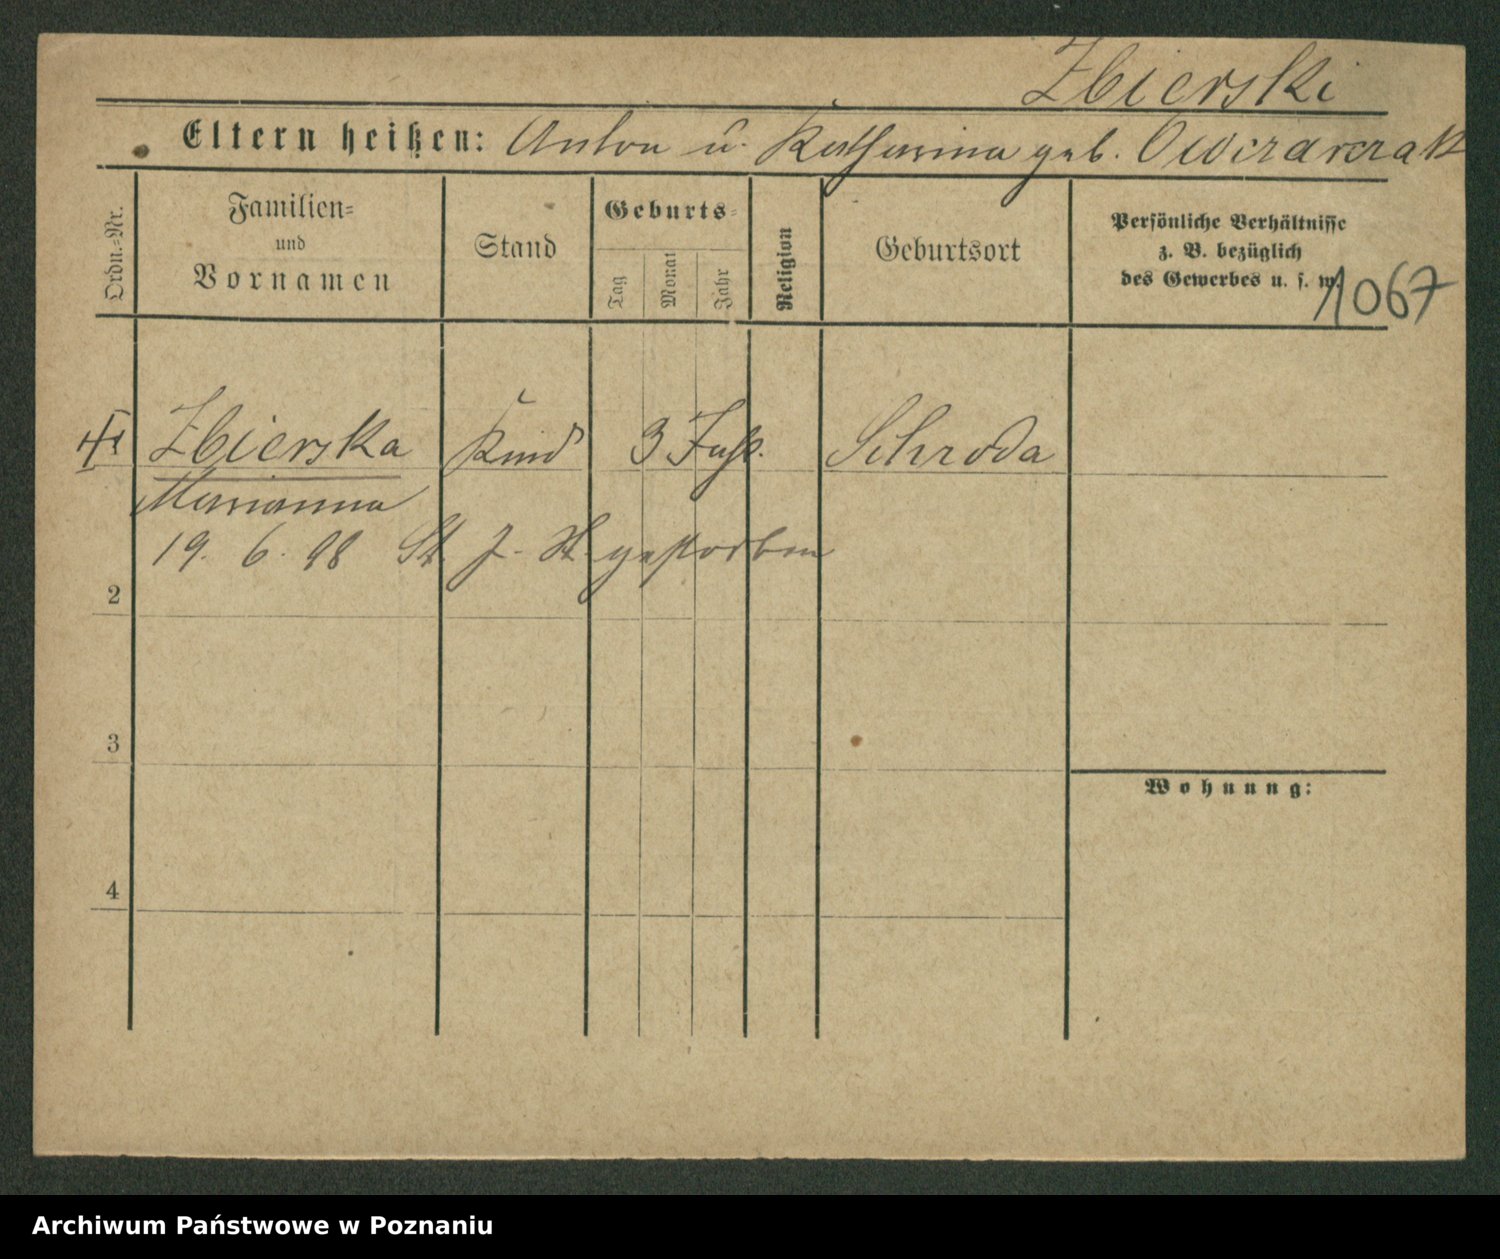 Zbierski
Eltern heißen: Anton u. Katharina geb. Owczarczak
Ordn.-Nr.
Familien-
und
Vornamen
Stand
Geburts-
Tag
Monat
Jahr
Religion
Geburtsort
Persönliche Verhältnisse
z. B. bezüglich
des Gewerbes u. s. w.
1067
Zbierska Kind 3 Jahr. Schroda
Marianna
19. 6. 98 St. J. gestorben
2
3
Wohnung:
4
Archiwum Państwowe w Poznaniu